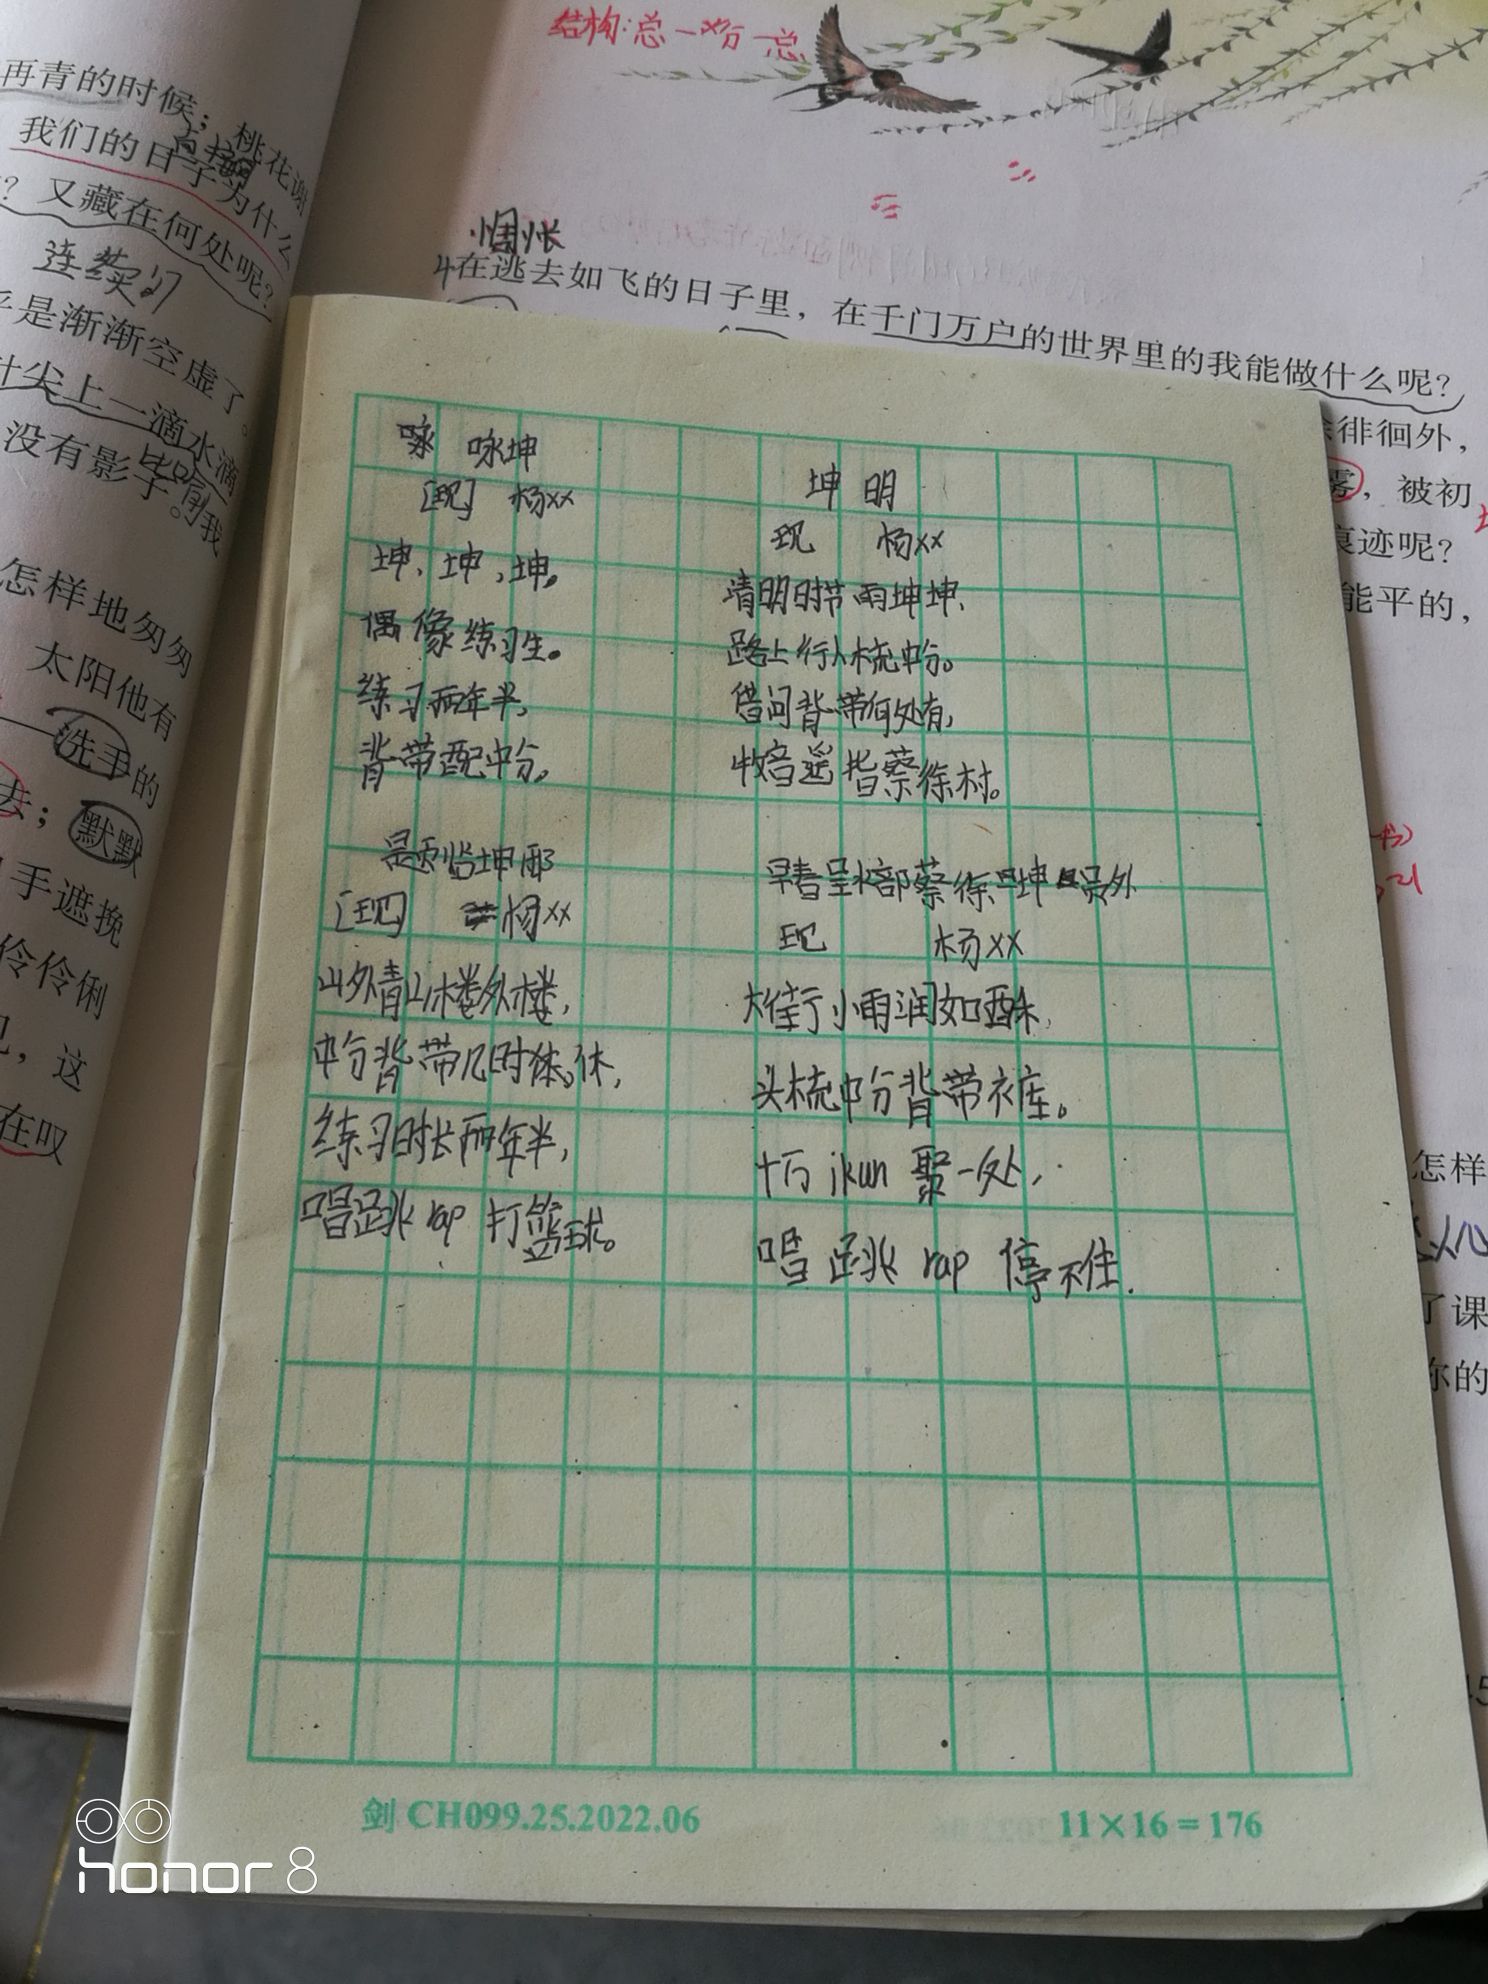 结构:总一分一总
再青的时候;桃花谢
我们的日子为什么
?又藏在何处呢?
连续问
乎是渐渐空虚了。
针尖上一滴水滴
没有影子。我
怎样地匆匆
太阳他有
洗手的
去;默默
手遮挽
伶伶俐
,这
在叹
惆怅
4在逃去如飞的日子里,在千门万户的世界里的我能做什么呢?
徘徊外,
雾,被初
痕迹呢?
能平的,
怎样
了课
你的
咏坤
[现] 杨xx
坤、坤、坤。
偶像练习生。
练习两年半,
背带配中分。
题临坤邸
[现] 杨xx
山外青山楼外楼,
中分背带几时休,
练习时长两年半,
唱跳rap打篮球。
坤明
现 杨xx
清明时节雨坤坤,
路上行人梳中分。
借问背带何处有,
牧音遥指蔡徐村。
早春呈水部蔡徐坤员外
现 杨xx
大街小雨润如酥,
头梳中分背带裤。
十万ikun聚一处,
唱跳rap停不住.
剑 CH099.25.2022.06
11×16=176
honor 8